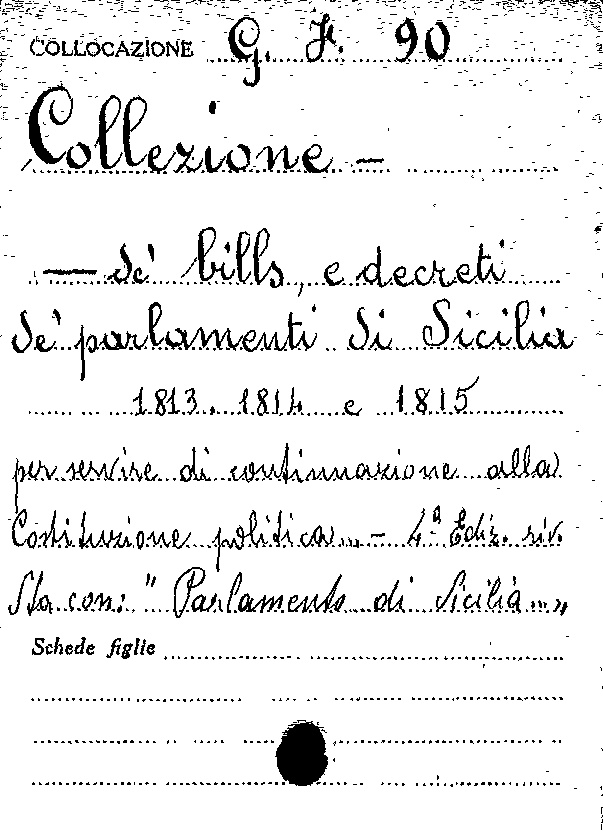 COLLOCAZIONE G. F. 90
Collezione —
— de' bills, e decreti
de' parlamenti di Sicilia
1813. 1814 e 1815
per servire di continuazione alla
Costituzione politica... - 4ª Ediz. riv.
Sta con: " Parlamento di Sicilia... "
Schede figlie